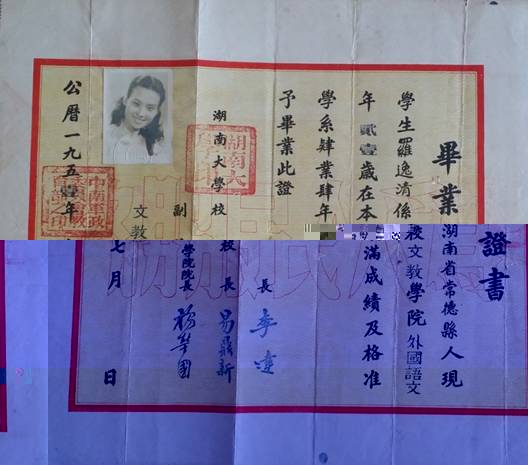 畢業證書
學生羅逸清係湖南省常德縣人現
年貳壹歲在本校文教學院外國語文
學系肄業肆年滿成績及格准
予畢業此證
湖南大學校長 李達
副校長 易鼎新
文教學院院長 楊榮國
公曆一九五壹年七月 日